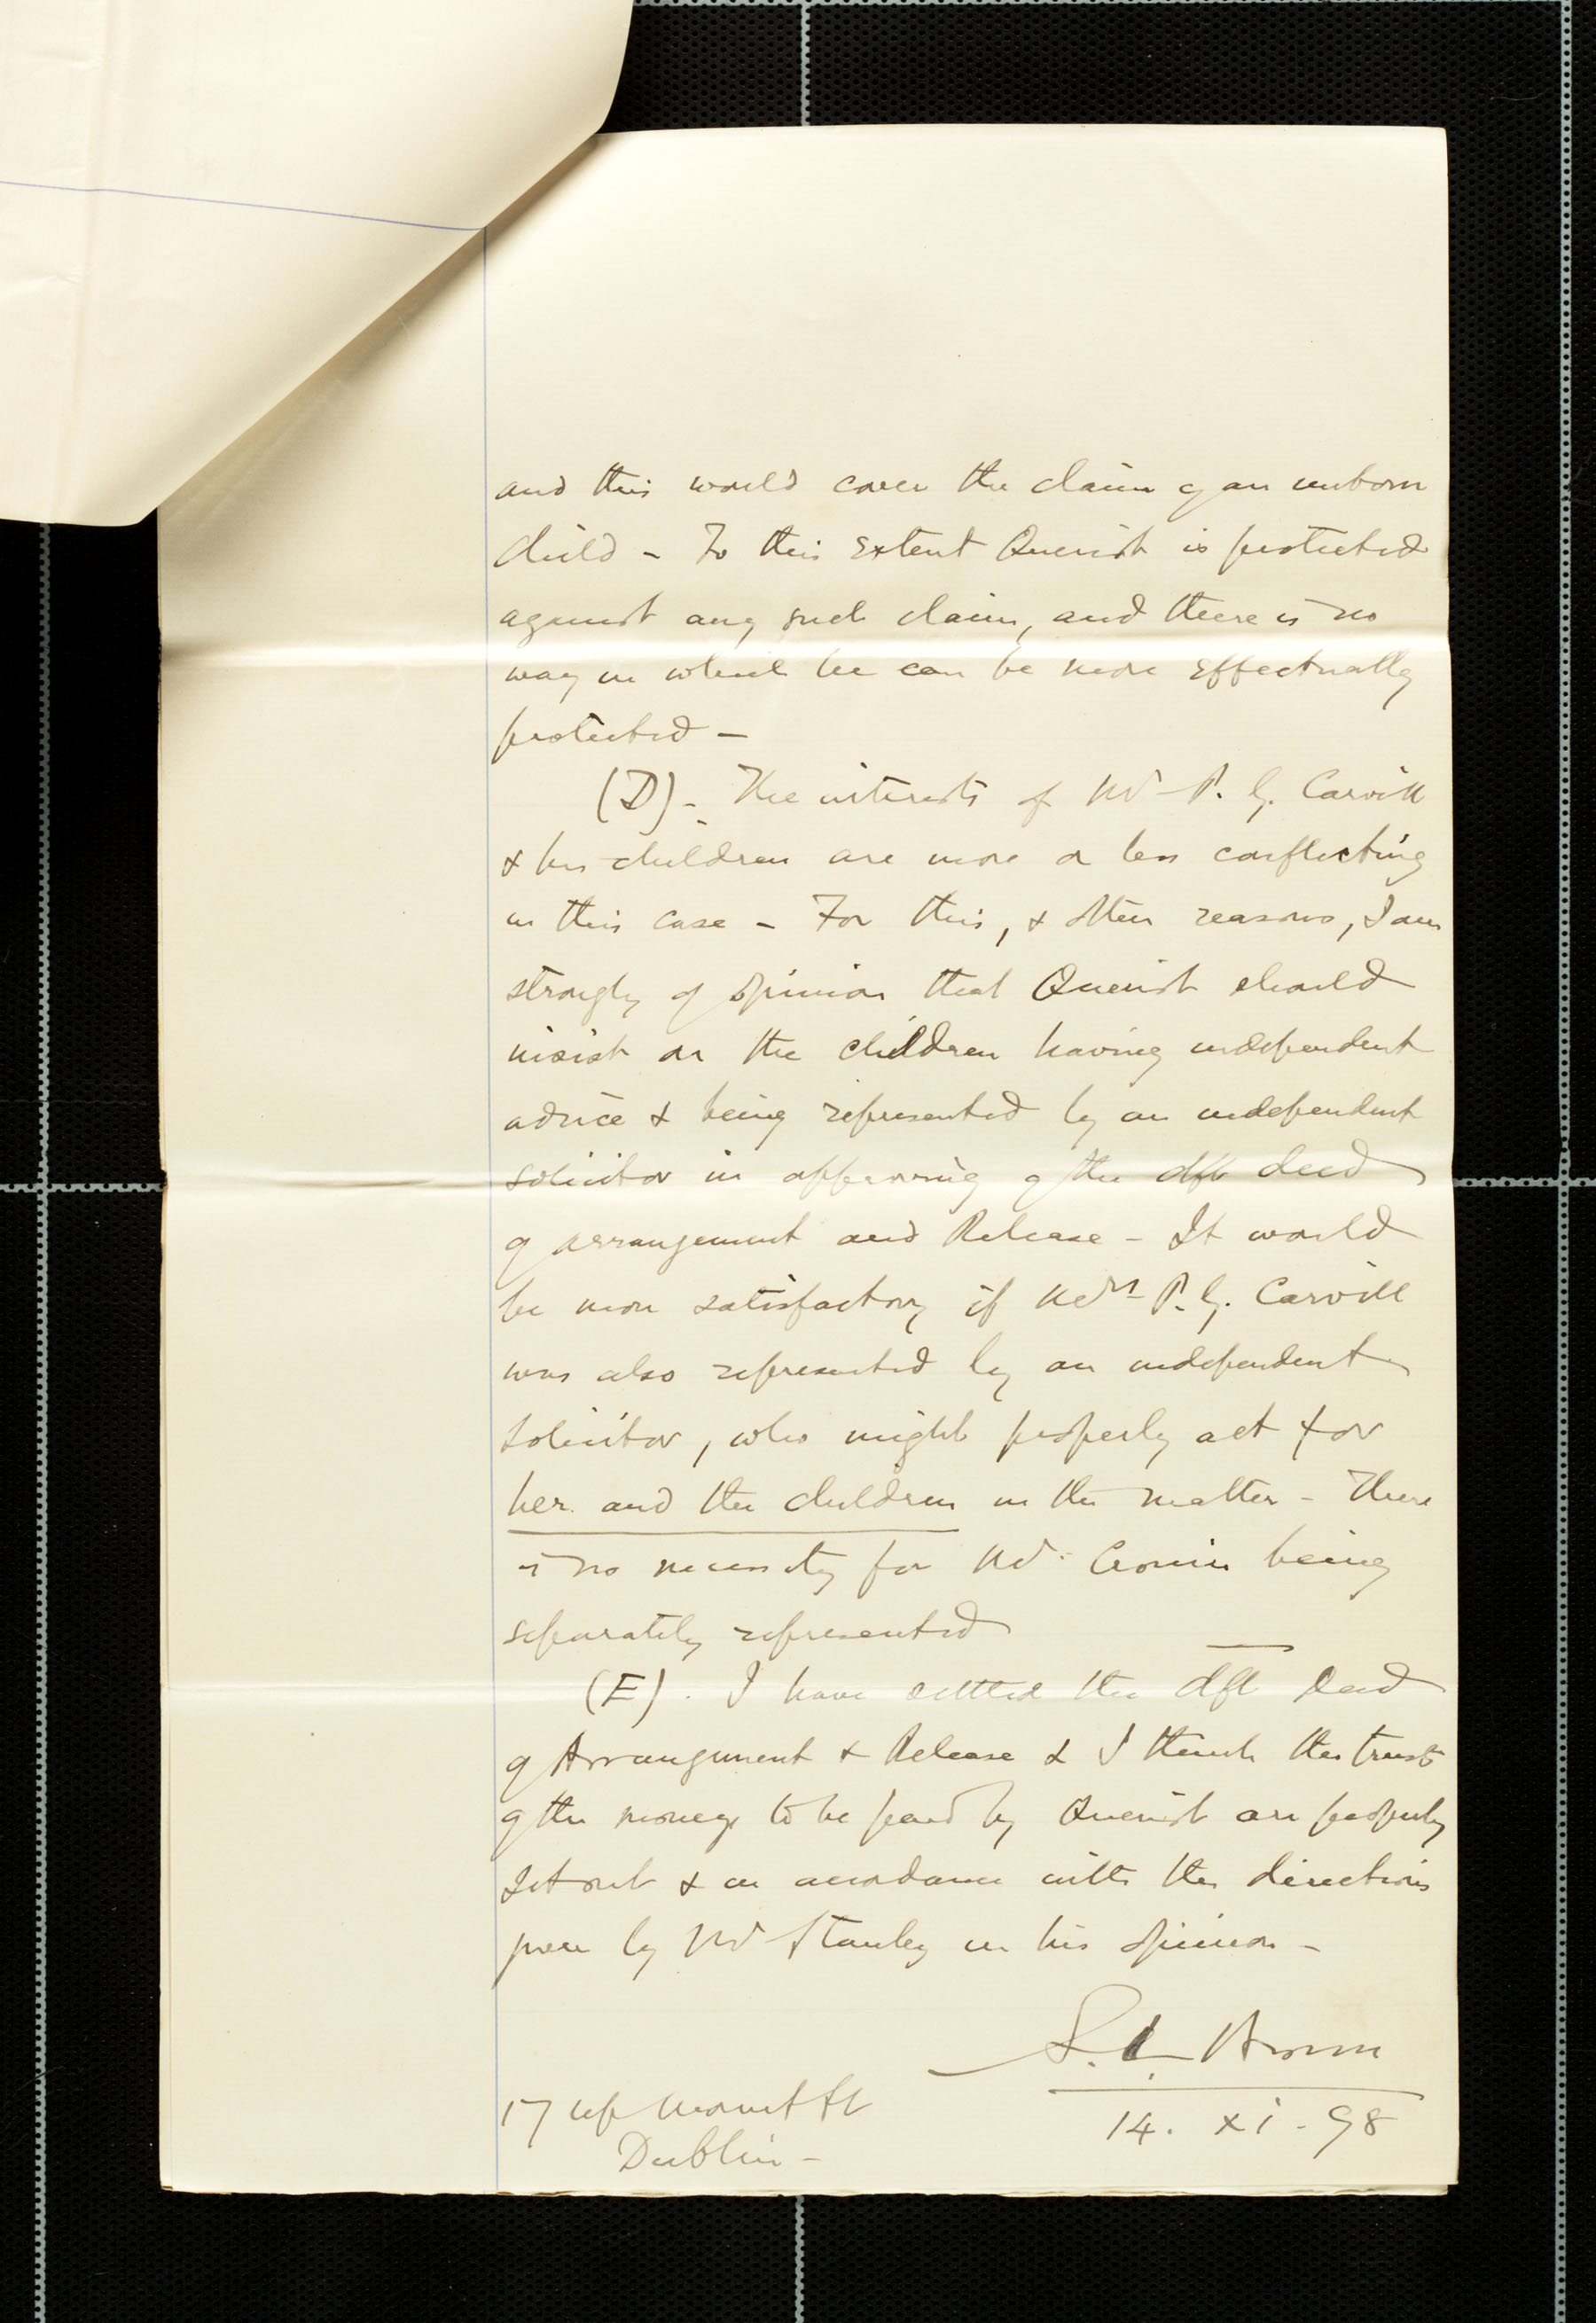 and this would cover the claim of an unborn
child - To this extent Querist is protected
against any such claim, and there is no
way in which he can be more effectually
protected -
(D) - The interests of Mr P. G. Carvill
& his children are more or less conflicting
in this case - For this, & other reasons, I am
strongly of opinion that Querist should
insist on the children having independent
advice & being represented by an independent
solicitor in approving of the dft deed
of arrangement and Release - It would
be more satisfactory if Mrs P. G. Carvill
was also represented by an independent
solicitor, who might properly act for
her and the children in the matter - There
is no necessity for Mr Cronin being
separately represented
(E). I have settled the dft Deed
of Arrangement & Release & I think the trusts
of the money to be paid by Querist are properly
set out & in accordance with the directions
given by Mr Stanley in his opinion -
S. L. Brown
14. xi - 98
17 Up Mount St
Dublin -